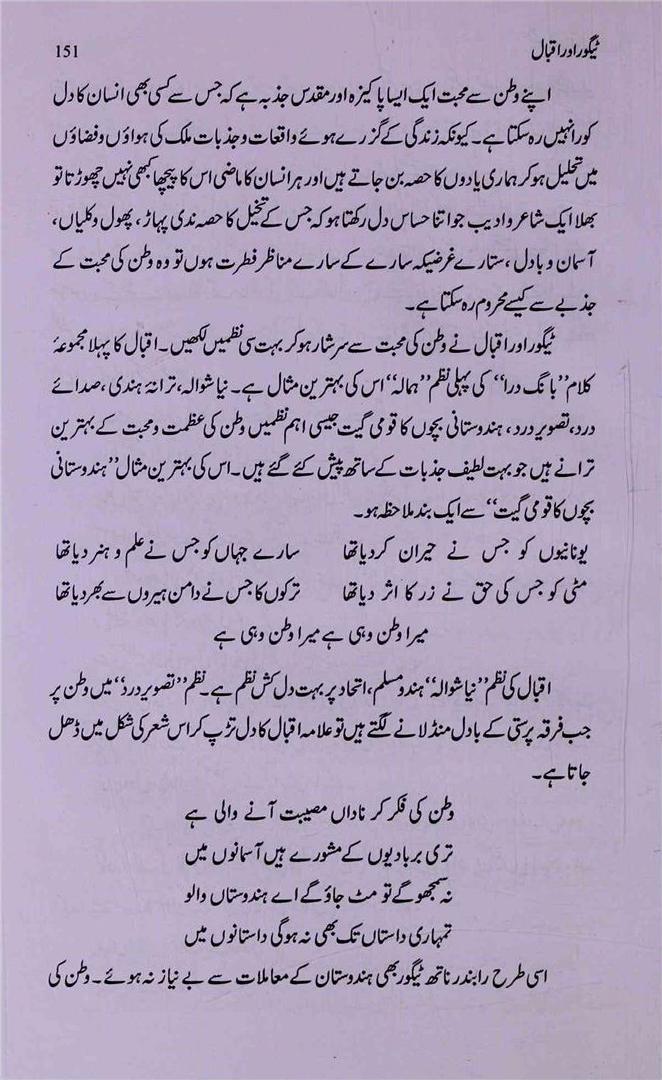 ٹیگور اور اقبال 151
اپنے وطن سے محبت ایک ایسا پاکیزہ اور مقدس جذبہ ہے کہ جس سے کسی بھی انسان کا دل
کورا نہیں رہ سکتا ہے۔ کیونکہ زندگی کے گزرے ہوئے واقعات و جذبات ملک کی ہواؤں و فضاؤں
میں تحلیل ہو کر ہماری یادوں کا حصہ بن جاتے ہیں اور ہر انسان کا ماضی اس کا پیچھا کبھی نہیں چھوڑتا تو
بھلا ایک شاعر و ادیب جو اتنا حساس دل رکھتا ہو کہ جس کے تخیل کا حصہ ندی پہاڑ، پھول و کلیاں،
آسمان و بادل، ستارے غرضیکہ سارے کے سارے مناظر فطرت ہوں تو وہ وطن کی محبت کے
جذبے سے کیسے محروم رہ سکتا ہے۔
ٹیگور اور اقبال نے وطن کی محبت سے سرشار ہو کر بہت سی نظمیں لکھیں۔ اقبال کا پہلا مجموعۂ
کلام ”بانگ درا“ کی پہلی نظم ”ہمالہ“ اس کی بہترین مثال ہے۔ نیا شوالہ، ترانۂ ہندی، صدائے
درد، تصویر درد، ہندوستانی بچوں کا قومی گیت جیسی اہم نظمیں وطن کی عظمت و محبت کے بہترین
ترانے ہیں جو بہت لطیف جذبات کے ساتھ پیش کئے گئے ہیں۔ اس کی بہترین مثال ”ہندوستانی
بچوں کا قومی گیت“ سے ایک بند ملاحظہ ہو۔
یونانیوں کو جس نے حیران کر دیا تھا سارے جہاں کو جس نے علم و ہنر دیا تھا
مٹی کو جس کی حق نے زر کا اثر دیا تھا ترکوں کا جس نے دامن ہیروں سے بھر دیا تھا
میرا وطن وہی ہے میرا وطن وہی ہے
اقبال کی نظم ”نیا شوالہ“ ہندو مسلم، اتحاد پر بہت دل کش نظم ہے۔ نظم ”تصویر درد“ میں وطن پر
جب فرقہ پرستی کے بادل منڈلانے لگتے ہیں تو علامہ اقبال کا دل تڑپ کر اس شعر کی شکل میں ڈھل
جاتا ہے۔
وطن کی فکر کر ناداں مصیبت آنے والی ہے
تری بربادیوں کے مشورے ہیں آسمانوں میں
نہ سمجھو گے تو مٹ جاؤ گے اے ہندوستاں والو
تمہاری داستاں تک بھی نہ ہوگی داستانوں میں
اسی طرح رابندر ناتھ ٹیگور بھی ہندوستان کے معاملات سے بے نیاز نہ ہوئے۔ وطن کی